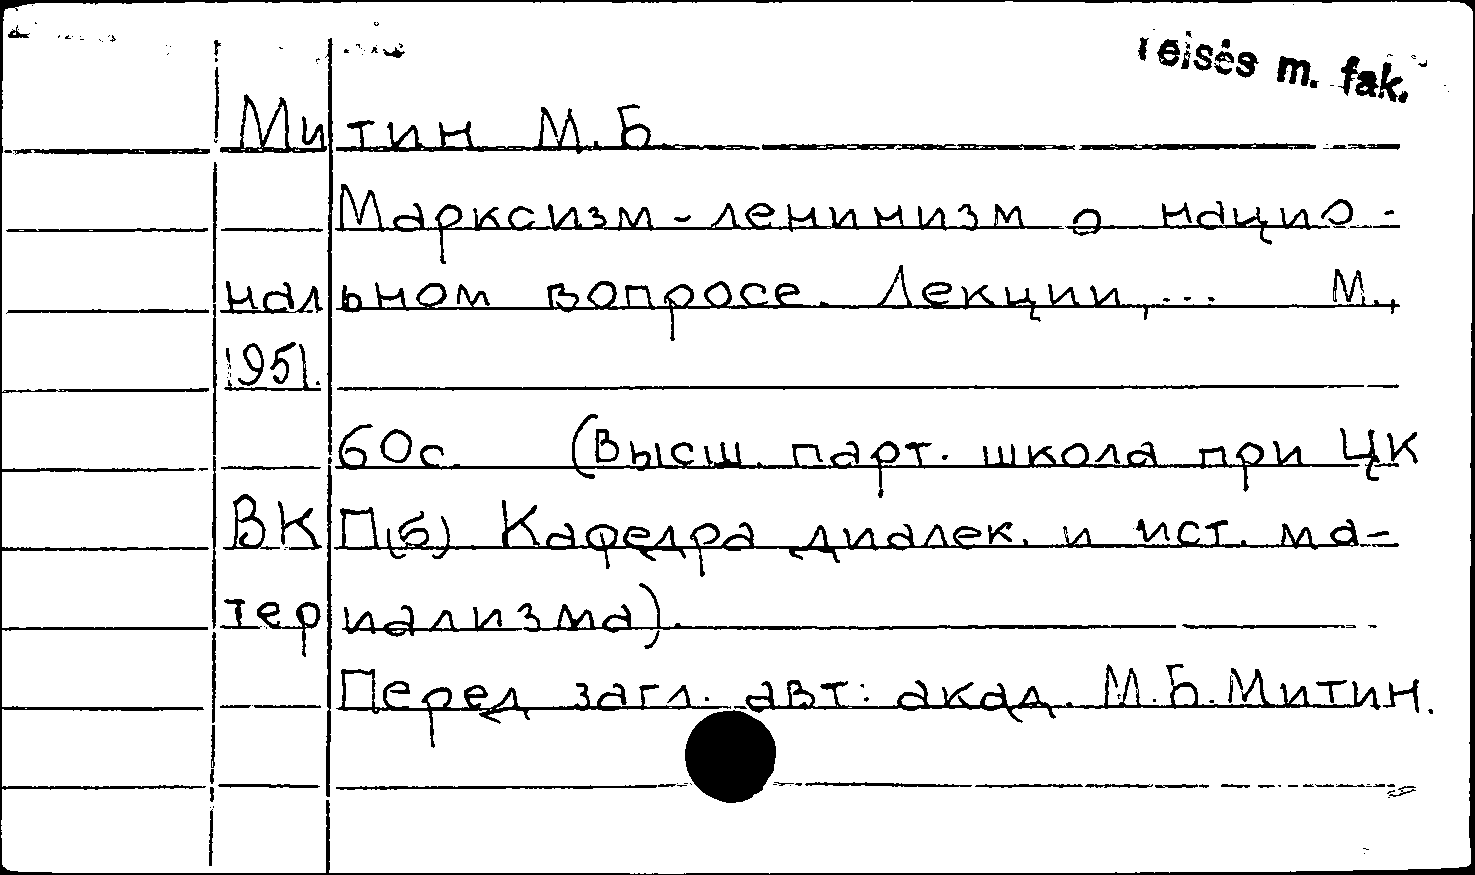 Teisės m. fak.
Митин М.Б.
Марксизм-ленинизм о нацио-
нальном вопросе. Лекции,... М.,
1951.
60с. (Высш. парт. школа при ЦК
ВКП(б) Кафедра диалек. и ист. ма-
териализма).
Перед загл. авт: акад. М.Б.Митин.